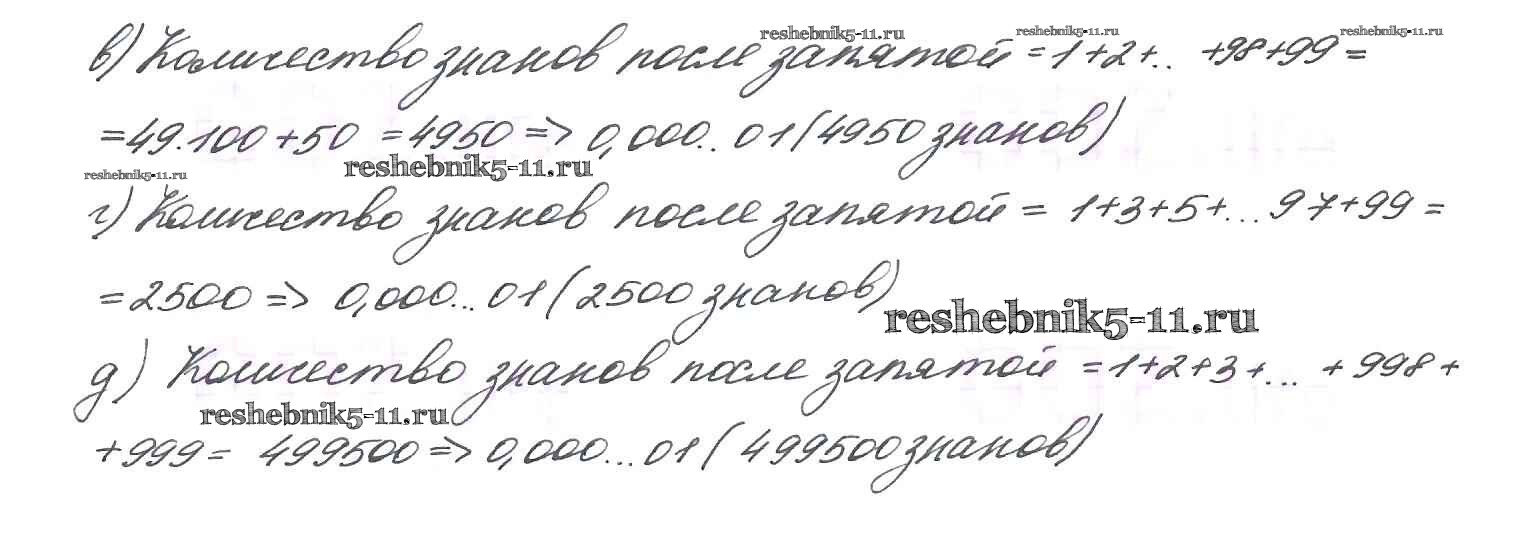 reshebnik5-11.ru reshebnik5-11.ru reshebnik5-11.ru
в) Количество знаков после запятой = 1+2+.. +98+99 =
= 49.100 + 50 = 4950 => 0,000.. 01 (4950 знаков)
reshebnik5-11.ru reshebnik5-11.ru
г) Количество знаков после запятой = 1+3+5+...97+99 =
= 2500 => 0,000...01 (2500 знаков)
reshebnik5-11.ru
д) Количество знаков после запятой = 1+2+3+... +998+
reshebnik5-11.ru
+999 = 499500 => 0,000...01 (499500 знаков)